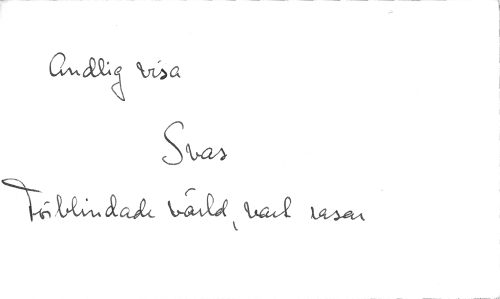 Andlig visa
Svar
Förblindade värld, vark rasar